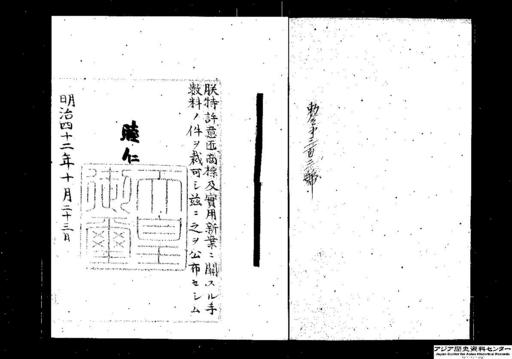 勅令第三百二號
朕特許意匠商標及實用新案ニ關スル手
數料ノ件ヲ裁可シ茲ニ之ヲ公布セシム
睦仁
天皇御璽
明治四十二年十月二十三日
アジア歴史資料センター
Japan Center for Asian Historical Records